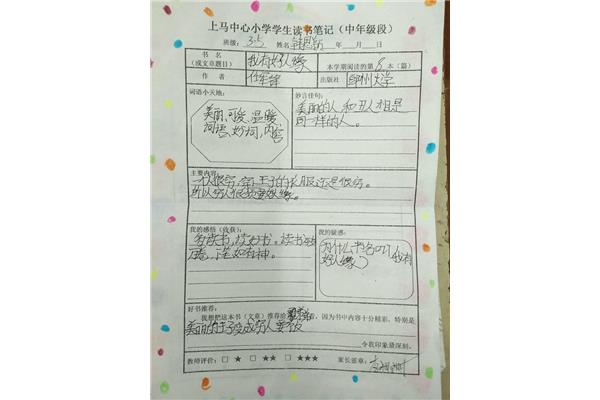 上马中心小学学生读书笔记（中年级段）
班级：3.5 姓名 年 月 日
书 名（或文章题目） 我有好人缘 本学期阅读的第 8 本（篇）
作 者 任军锋 出版社 郑州大学
词语小天地：
美丽、可爱、温暖
词语、好词、内容
妙言佳句：
美丽的人和丑人相是
同一样的人。
主要内容：
一人很穷，穿王子的衣服还是很穷。
所以穷人很
我的感悟（收获）：
多读书，读好书。读书破
万卷，下笔如有神。
我的疑惑：
为什么书名叫《我有
好人缘》？
好书推荐：
我想把这本书（文章）推荐给 看，因为书中内容十分精彩，特别是
美丽的王子变成穷人要饭
令我印象最深刻。
教师评价：□ ★ □ ★★ □ ★★★ 家长签章：